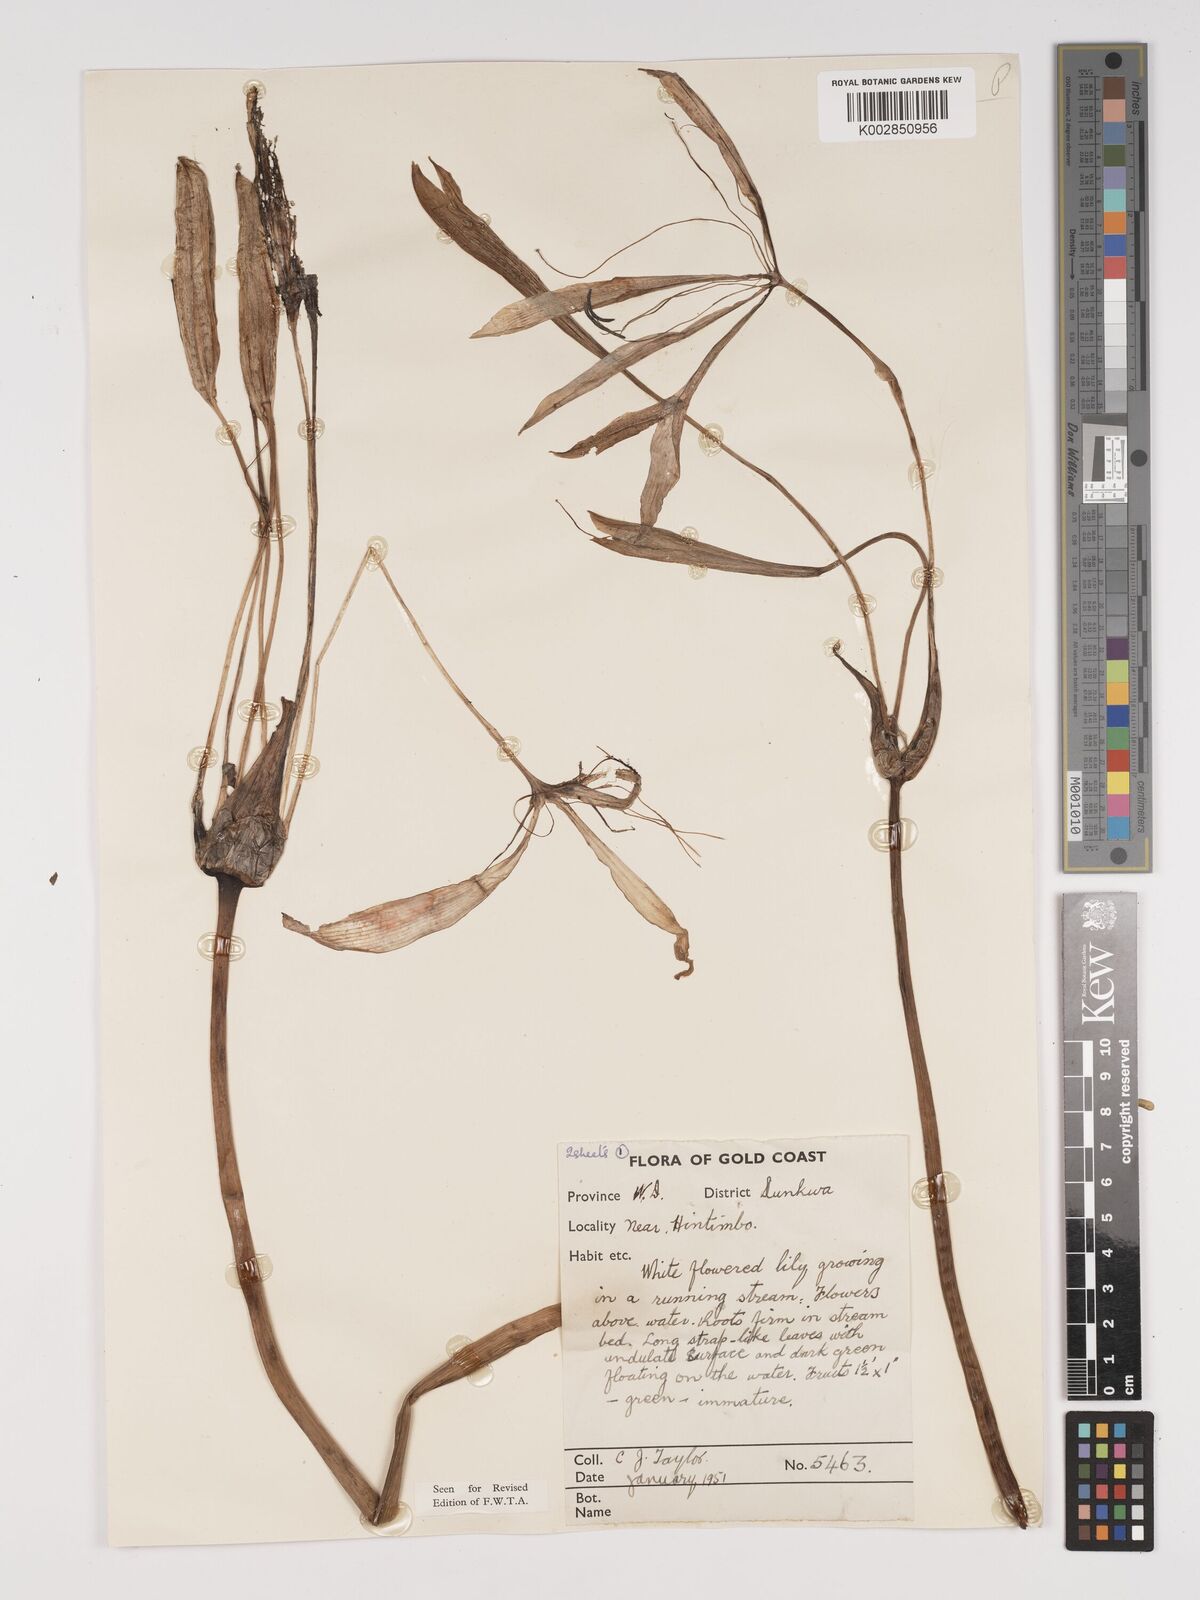 ROYAL BOTANIC GARDENS KEW
K002850956
P
2 sheets ①
FLORA OF GOLD COAST
Province W.P. District Dunkwa
Locality Near Hintimbo.
Habit etc.
White flowered lily growing
in a running stream. Flowers
above water. Roots firm in stream
bed. Long strap-like leaves with
undulate surface and dark green
floating on the water. Fruits 1½" x 1"
- green - immature.
Coll. C J. Taylor.
No. 5463.
Date January, 1951
Bot.
Name
Seen for Revised
Edition of F.W.T.A.
Don Williams
Density
M001010
centimeters
Royal Botanic Gardens
Kew
copyright reserved
0 1 2 3 4 5 6 7 8 9 10
cm